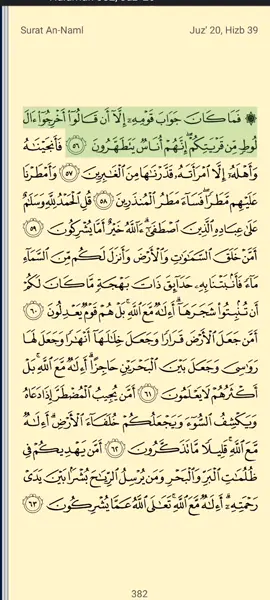 Surat An-Naml Juz' 20, Hizb 39
۞ فَمَا كَانَ جَوَابَ قَوْمِهِۦٓ إِلَّآ أَن قَالُوٓا۟ أَخْرِجُوٓا۟ ءَالَ
لُوطٍ مِّن قَرْيَتِكُمْ ۖ إِنَّهُمْ أُنَاسٌ يَتَطَهَّرُونَ ٥٦ فَأَنجَيْنَٰهُ
وَأَهْلَهُۥٓ إِلَّا ٱمْرَأَتَهُۥ قَدَّرْنَٰهَا مِنَ ٱلْغَٰبِرِينَ ٥٧ وَأَمْطَرْنَا
عَلَيْهِم مَّطَرًا ۖ فَسَآءَ مَطَرُ ٱلْمُنذَرِينَ ٥٨ قُلِ ٱلْحَمْدُ لِلَّهِ وَسَلَٰمٌ
عَلَىٰ عِبَادِهِ ٱلَّذِينَ ٱصْطَفَىٰٓ ۗ ءَآللَّهُ خَيْرٌ أَمَّا يُشْرِكُونَ ٥٩
أَمَّنْ خَلَقَ ٱلسَّمَٰوَٰتِ وَٱلْأَرْضَ وَأَنزَلَ لَكُم مِّنَ ٱلسَّمَآءِ
مَآءً فَأَنۢبَتْنَا بِهِۦ حَدَآئِقَ ذَاتَ بَهْجَةٍ مَّا كَانَ لَكُمْ
أَن تُنۢبِتُوا۟ شَجَرَهَآ ۗ أَءِلَٰهٌ مَّعَ ٱللَّهِ ۚ بَلْ هُمْ قَوْمٌ يَعْدِلُونَ ٦٠
أَمَّن جَعَلَ ٱلْأَرْضَ قَرَارًا وَجَعَلَ خِلَٰلَهَآ أَنْهَٰرًا وَجَعَلَ لَهَا
رَوَٰسِىَ وَجَعَلَ بَيْنَ ٱلْبَحْرَيْنِ حَاجِزًا ۗ أَءِلَٰهٌ مَّعَ ٱللَّهِ ۚ بَلْ
أَكْثَرُهُمْ لَا يَعْلَمُونَ ٦١ أَمَّن يُجِيبُ ٱلْمُضْطَرَّ إِذَا دَعَاهُ
وَيَكْشِفُ ٱلسُّوٓءَ وَيَجْعَلُكُمْ خُلَفَآءَ ٱلْأَرْضِ ۗ أَءِلَٰهٌ
مَّعَ ٱللَّهِ ۚ قَلِيلًا مَّا تَذَكَّرُونَ ٦٢ أَمَّن يَهْدِيكُمْ فِى
ظُلُمَٰتِ ٱلْبَرِّ وَٱلْبَحْرِ وَمَن يُرْسِلُ ٱلرِّيَٰحَ بُشْرًۢا بَيْنَ يَدَىْ
رَحْمَتِهِۦٓ ۗ أَءِلَٰهٌ مَّعَ ٱللَّهِ ۚ تَعَٰلَى ٱللَّهُ عَمَّا يُشْرِكُونَ ٦٣
382